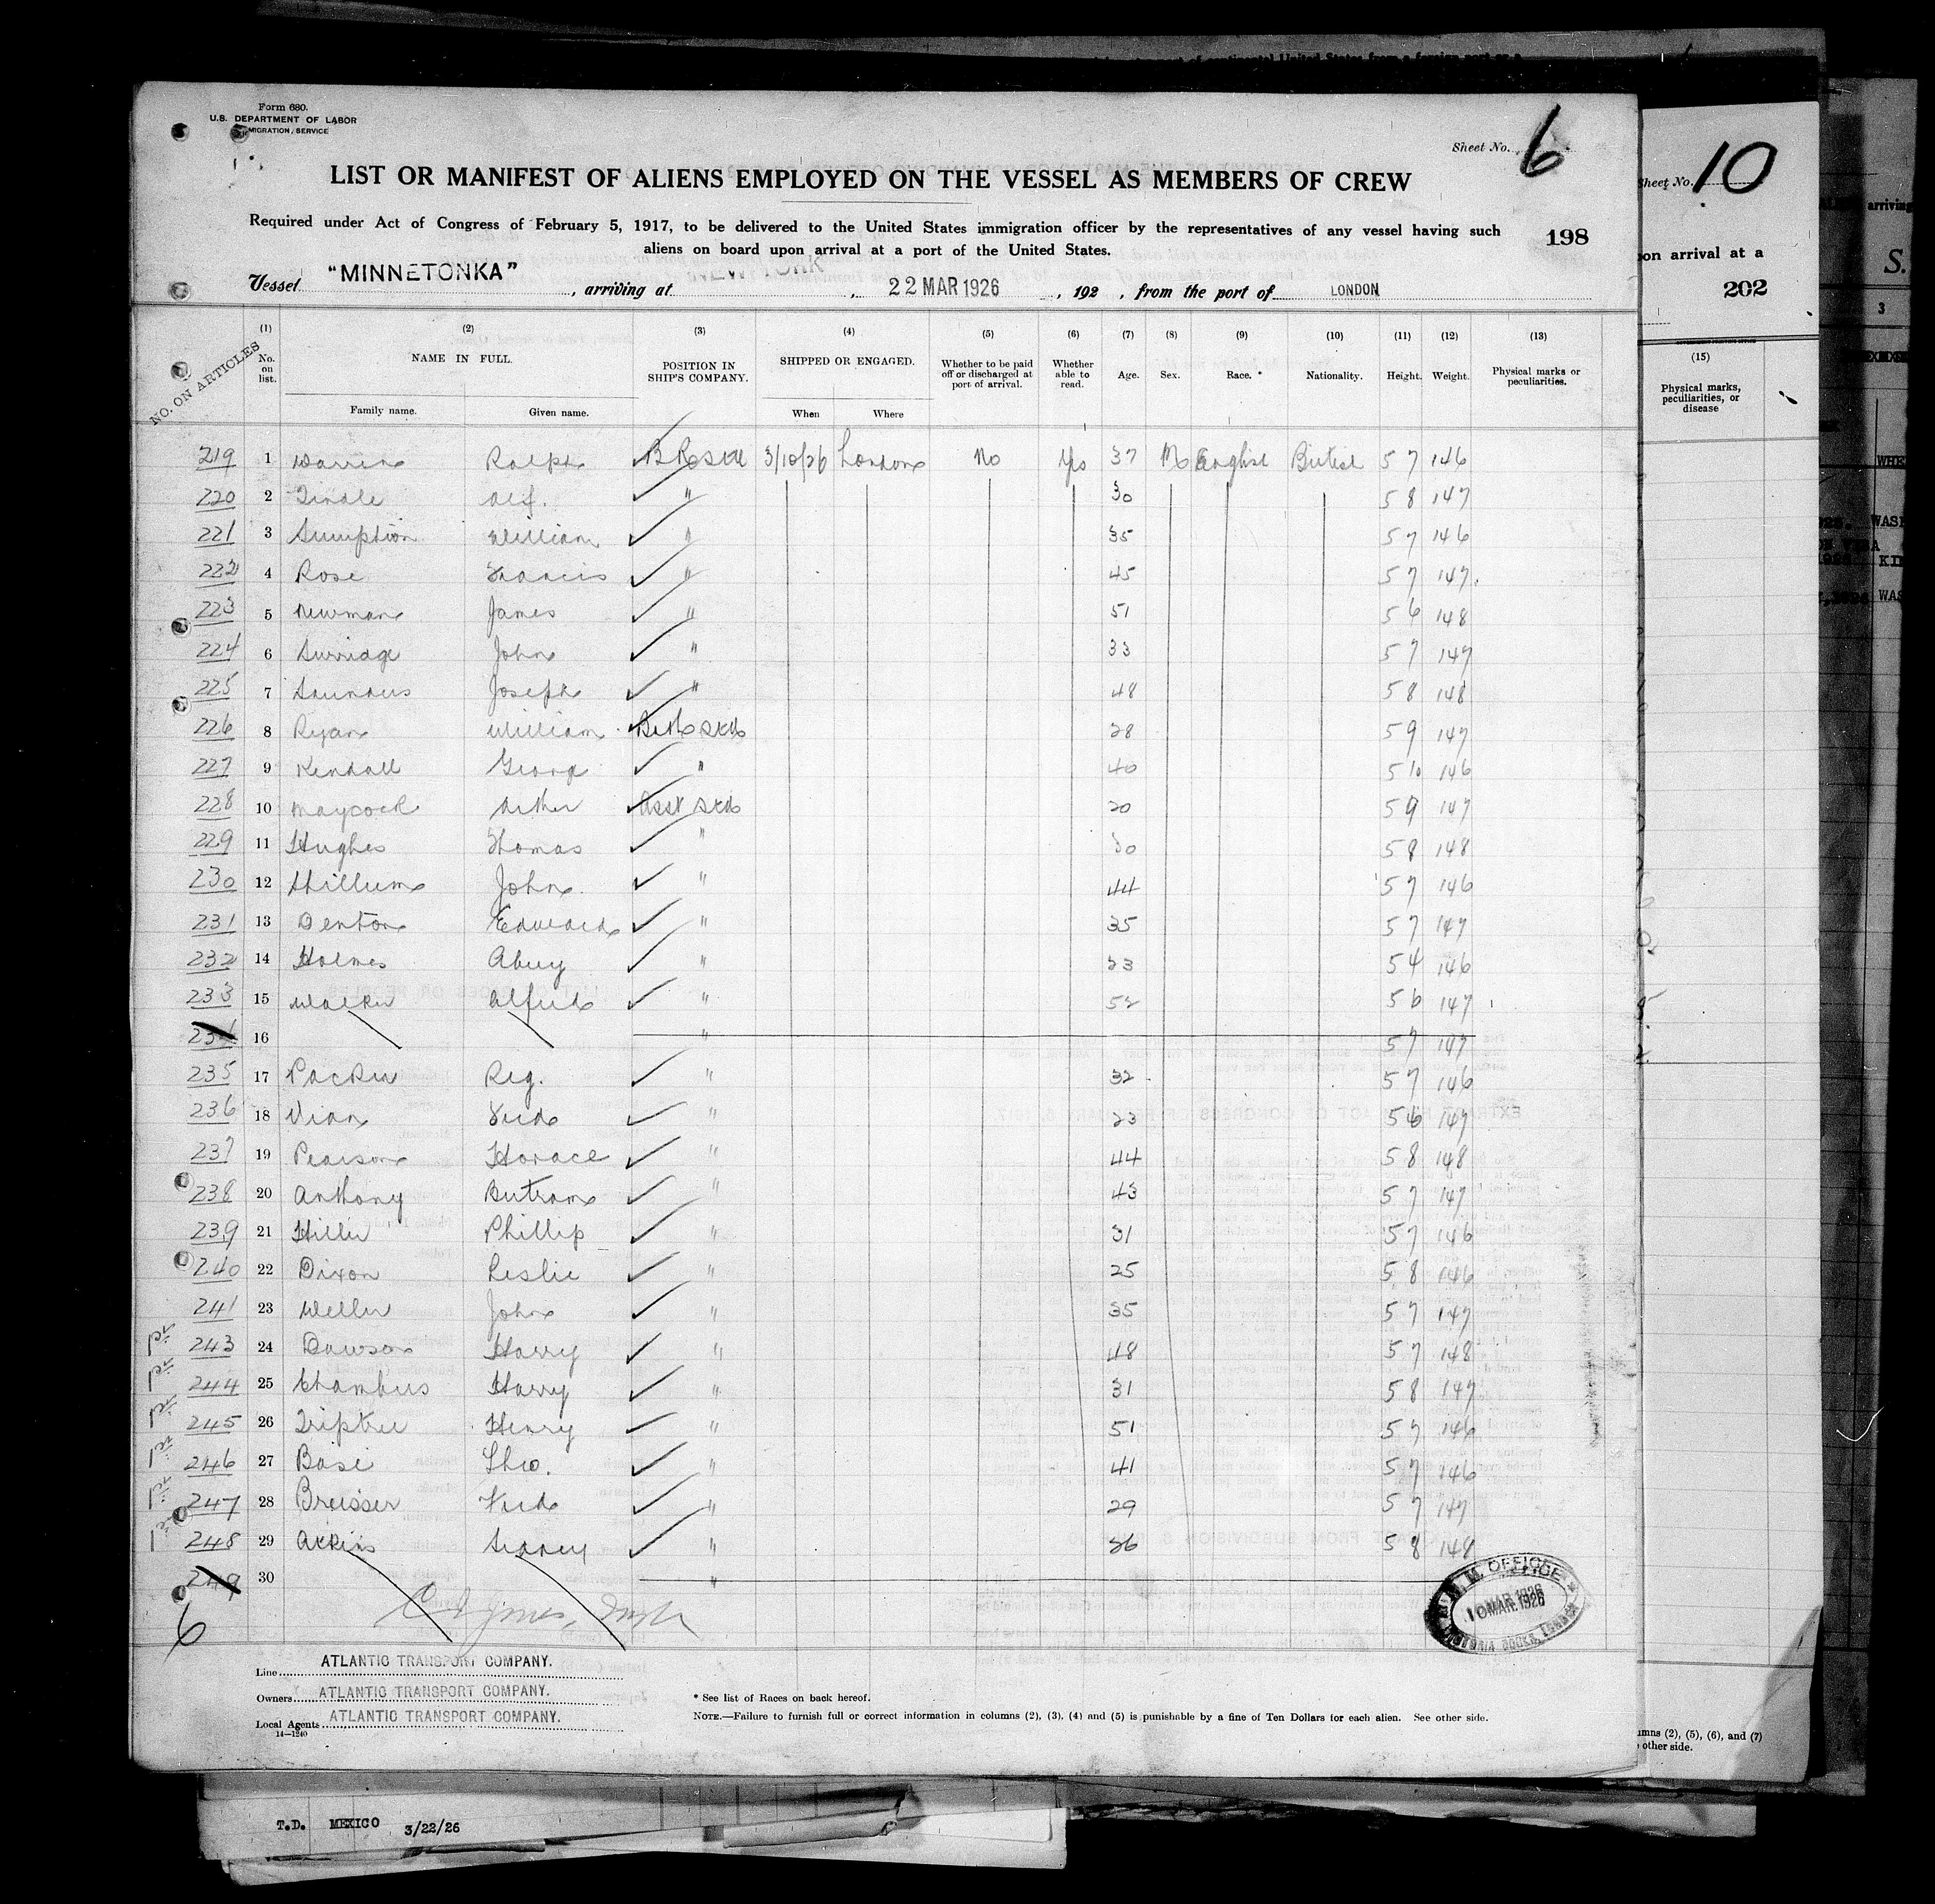 Form 680.
U.S. DEPARTMENT OF LABOR
IMMIGRATION SERVICE
Sheet No. 6
LIST OR MANIFEST OF ALIENS EMPLOYED ON THE VESSEL AS MEMBERS OF CREW
Required under Act of Congress of February 5, 1917, to be delivered to the United States immigration officer by the representatives of any vessel having such
aliens on board upon arrival at a port of the United States.
198
Vessel "MINNETONKA", arriving at NEW YORK, 22 MAR 1926, 192 , from the port of LONDON
NO. ON ARTICLES
(1) No. on list.
(2) NAME IN FULL. Family name. Given name.
(3) POSITION IN SHIP'S COMPANY.
(4) SHIPPED OR ENGAGED. When Where
(5) Whether to be paid off or discharged at port of arrival.
(6) Whether able to read.
(7) Age.
(8) Sex.
(9) Race. *
(10) Nationality.
(11) Height.
(12) Weight.
(13) Physical marks or peculiarities.
219 1 Warren Ralph 3/10/26 London No Yes 37 M English British 5 7 146
220 2 Tindle Alf. " 30 5 8 147
221 3 Sumption William " 35 5 7 146
222 4 Rose Francis " 45 5 7 147
223 5 Newman James " 51 5 6 148
224 6 Surridge John " 33 5 7 147
225 7 Saunders Joseph " 48 5 8 148
226 8 Ryan William 28 5 9 147
227 9 Kendall George " 40 5 10 146
228 10 Maycock Arthur Asst Std 20 5 9 147
229 11 Hughes Thomas " 30 5 8 148
230 12 John " 44 5 7 146
231 13 Denton Edward " 35 5 7 147
232 14 Holmes " 23 5 4 146
233 15 Walker Alfred " 52 5 6 147
234 16 " 5 7 147
235 17 Packer Reg. " 32 5 7 146
236 18 Vian Fred " 23 5 6 147
237 19 Pearson Horace " 44 5 8 148
238 20 Anthony Bertram " 43 5 7 147
239 21 Hiller Phillip " 31 5 7 146
240 22 Dixon Leslie " 25 5 8 146
241 23 Weller John " 35 5 7 147
243 24 Dawson Harry " 48 5 7 148
244 25 Chambers Harry " 31 5 8 147
245 26 Triptree Henry " 51 5 7 146
246 27 Basi Theo. " 41 5 7 146
247 28 Breisser Fred " 29 5 7 147
248 29 Atkins Sidney " 36 5 8 148
249 30 "
6
M. M. OFFICE
10 MAR. 1926
VICTORIA DOCKS, LONDON
Line ATLANTIC TRANSPORT COMPANY.
Owners ATLANTIC TRANSPORT COMPANY.
Local Agents ATLANTIC TRANSPORT COMPANY.
14—1240
* See list of Races on back hereof.
NOTE.—Failure to furnish full or correct information in columns (2), (3), (4) and (5) is punishable by a fine of Ten Dollars for each alien. See other side.
Sheet No. 10
on arrival at a
202
(15)
Physical marks, peculiarities, or disease
umns (2), (5), (6), and (7)
other side.
arriving
S.
3
T.D. MEXICO 3/22/26